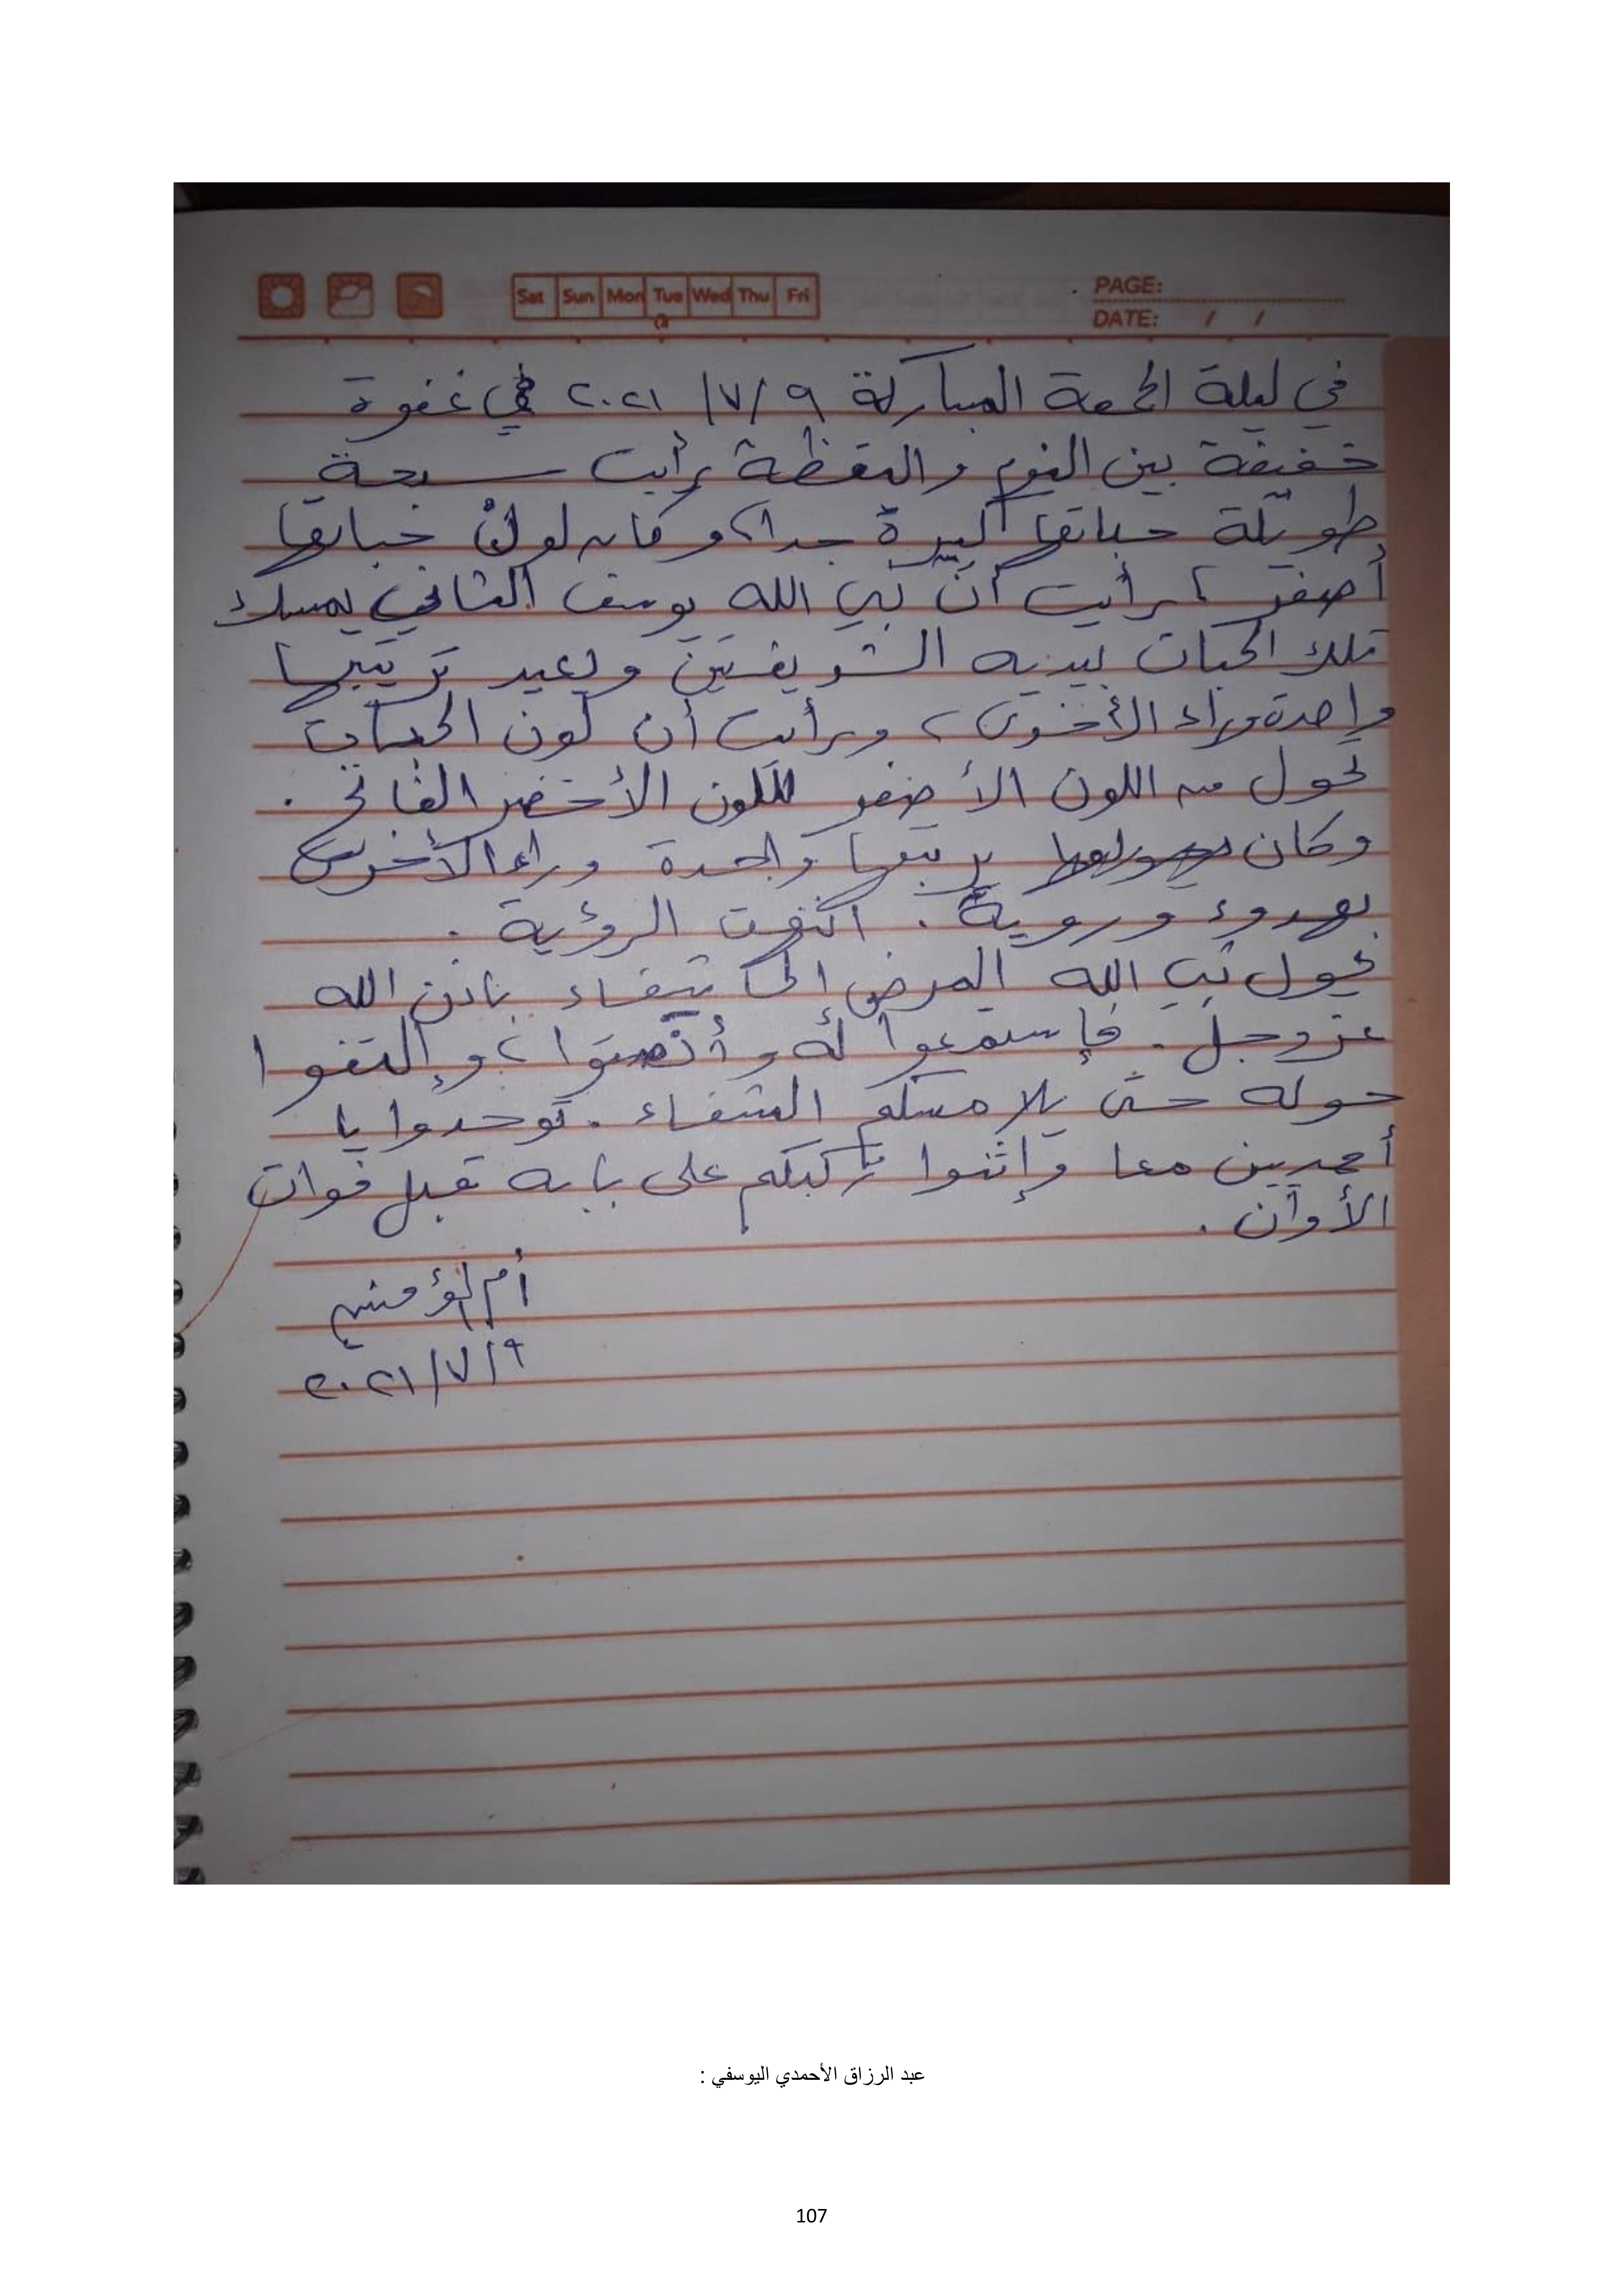 Sat Sun Mon Tue Wed Thu Fri
PAGE:
DATE: / /
في ليلة الجمعة المباركة ٩/٧/٢٠٢١ في غفوة
خفيفة بين النوم واليقظة رأيت سبحة
طويلة حباتها كبيرة جدا، وكان لون حباتها
أصفر، رأيت أنّ نبي الله يوسف الثاني يمسك
تلك الحبات بيديه الشريفتين ويعيد ترتيبها
واحدة وراء الأخرى، ورأيت أن لون الحبات
تحول من اللون الأصفر للون الأخضر الفاتح.
وكان يرتبها واحدة وراء الأخرى
بهدوء وروية. انتهت الرؤية.
يحول نبي الله المرض إلى شفاء بإذن الله
عز وجل. فإستمعوا له وأنصتوا، وإلتفوا
حوله حتى يلامسكم الشفاء. توحدوا يا
أحمديين معا وإثنوا ركبكم على بابه قبل فوات
الأوان.
أم المؤمنين
٩/٧/٢٠٢١
عبد الرزاق الأحمدي اليوسفي :
107